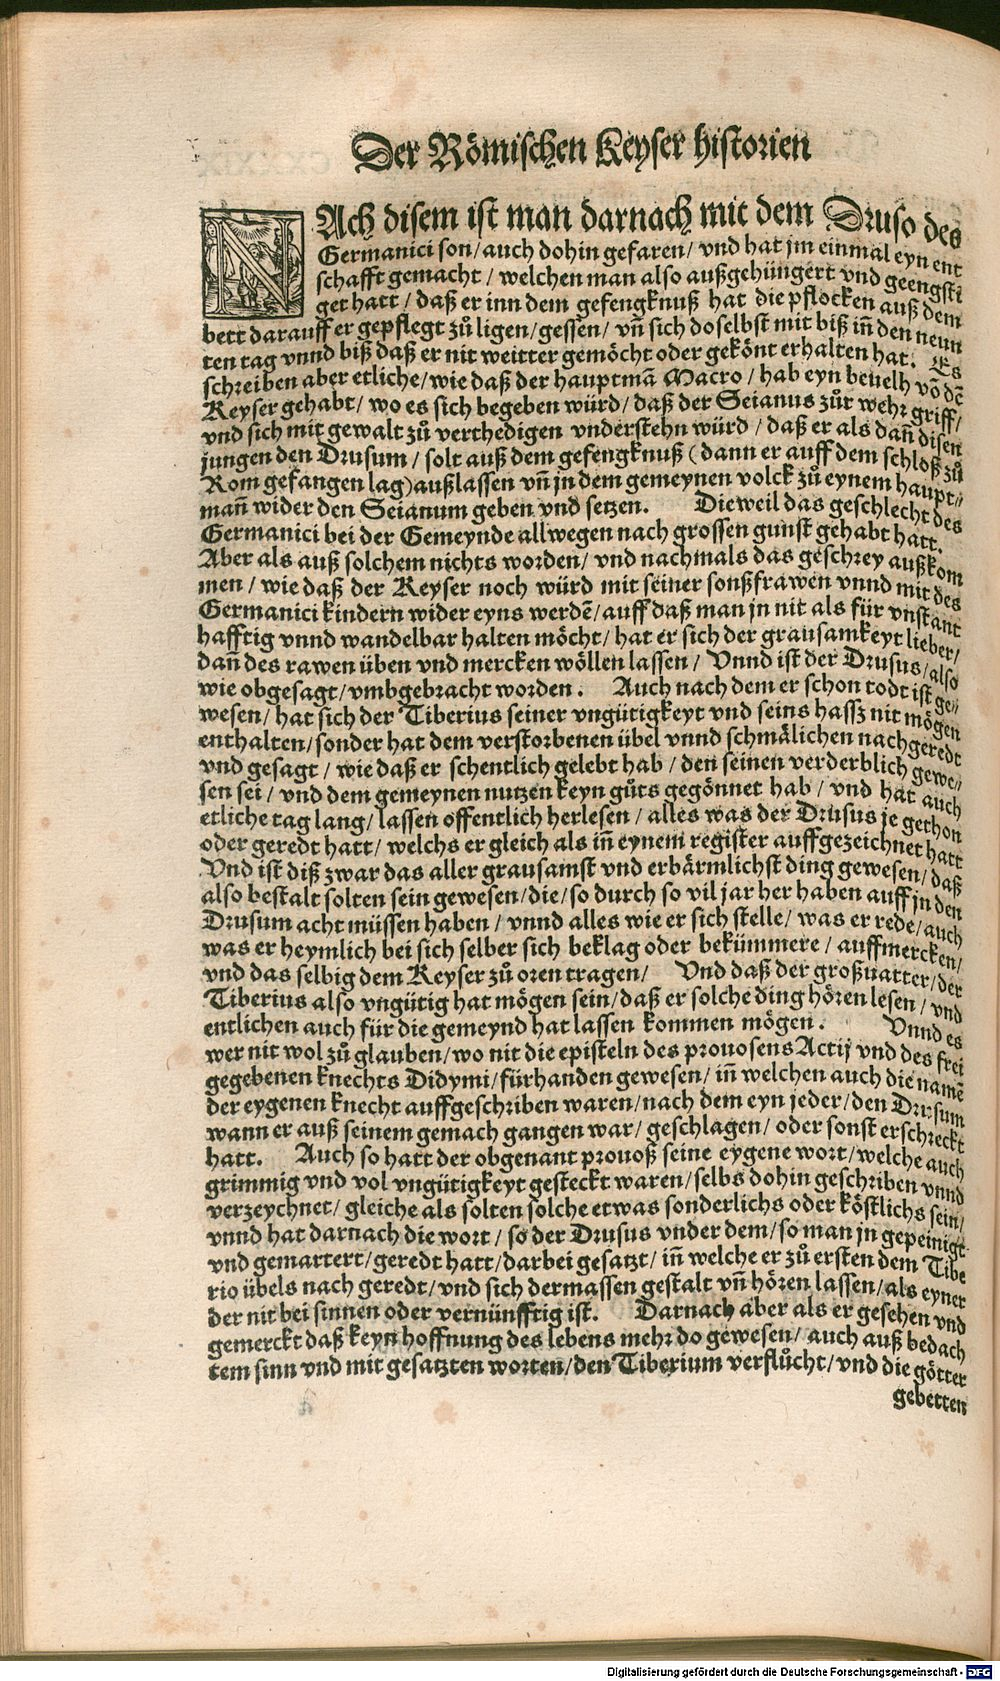 Der Römischen Keyser historien
NAch disem ist man darnach mit dem Druso des
Germanici son/ auch dohin gefaren/ vnd hat jm einmal eyn ent
schafft gemacht/ welchen man also außgehüngert vnd geengsti
get hatt/ daß er inn dem gefengknuß hat die pflocken auß dem
bett darauff er gepflegt zů ligen/ gessen/ vñ sich doselbst mit biß iñ den neun
ten tag vnnd biß daß er nit weitter gemöcht oder gekönt erhalten hat. Es
schreiben aber etliche/ wie daß der hauptmã Macro/ hab eyn beuelh võ dẽ
Keyser gehabt/ wo es sich begeben würd/ daß der Seianus zůr wehr griff/
vnd sich mit gewalt zů verthedigen vnderstehn würd/ daß er als dañ disen
jungen den Drusum/ solt auß dem gefengknuß (dann er auff dem schloß zů
Rom gefangen lag) außlassen vñ in dem gemeynen volck zů eynem haupt⸗
mañ wider den Seianum geben vnd setzen. Dieweil das geschlecht des
Germanici bei der Gemeynde allwegen nach grossen gunst gehabt hatt.
Aber als auß solchem nichts worden/ vnd nachmals das geschrey außkom
men/ wie daß der Keyser noch würd mit seiner sonßfrawen vnnd mit des
Germanici kindern wider eyns werdẽ/ auff daß man jn nit als für vnstant
hafftig vnnd wandelbar halten möcht/ hat er sich der grausamkeyt lieber/
dañ des rawen üben vnd mercken wöllen lassen/ Vnnd ist der Drusus/ also
wie obgesagt/ vmbgebracht worden. Auch nach dem er schon todt ist ge⸗
wesen/ hat sich der Tiberius seiner vngütigkeyt vnd seins hassz nit mögen
enthalten/ sonder hat dem verstorbenen übel vnnd schmälichen nachgeredt
vnd gesagt/ wie daß er schentlich gelebt hab/ den seinen verderblich gewe⸗
sen sei/ vnd dem gemeynen nutzen keyn gůts gegönnet hab/ vnd hat auch
etliche tag lang/ lassen offentlich herlesen/ alles was der Drusus je gethon
oder geredt hatt/ welchs er gleich als iñ eynem register auffgezeichnet hatt
Vnd ist diß zwar das aller grausamst vnd erbärmlichst ding gewesen/ daß
also bestalt solten sein gewesen/ die/ so durch so vil jar her haben auff jn den
Drusum acht müssen haben/ vnnd alles wie er sich stelle/ was er rede/ auch
was er heymlich bei sich selber sich beklag oder bekümmere/ auffmercken/
vnd das selbig dem Keyser zů oren tragen/ Vnd daß der großuatter/ der
Tiberius also vngütig hat mögen sein/ daß er solche ding hören lesen/ vnd
entlichen auch für die gemeynd hat lassen kommen mögen. Vnnd es
wer nit wol zů glauben/ wo nit die episteln des prouosens Actij vnd des frei
gegebenen knechts Didymi/ fürhanden gewesen/ iñ welchen auch die namẽ
der eygenen knecht auffgeschriben waren/ nach dem eyn jeder/ den Drusum
wann er auß seinem gemach gangen war/ geschlagen/ oder sonst erschreckt
hatt. Auch so hatt der obgenant prouoß seine eygene wort/ welche auch
grimmig vnd vol vngütigkeyt gesteckt waren/ selbs dohin geschriben vnnd
verzeychnet/ gleiche als solten solche etwas sonderlichs oder köstlichs sein/
vnnd hat darnach die wort/ so der Drusus vnder dem/ so man jn gepeinigt
vnd gemartert/ geredt hatt/ darbei gesatzt/ iñ welche er zů ersten dem Tibe
rio übels nach geredt/ vnd sich dermassen gestalt vñ hören lassen/ als eyner
der nit bei sinnen oder vernünfftig ist. Darnach aber als er gesehen vnd
gemerckt daß keyn hoffnung des lebens mehr do gewesen/ auch auß bedach
tem sinn vnd mit gesatzten worten/ den Tiberium verflůcht/ vnd die götter
gebetten
Digitalisierung gefördert durch die Deutsche Forschungsgemeinschaft - DFG